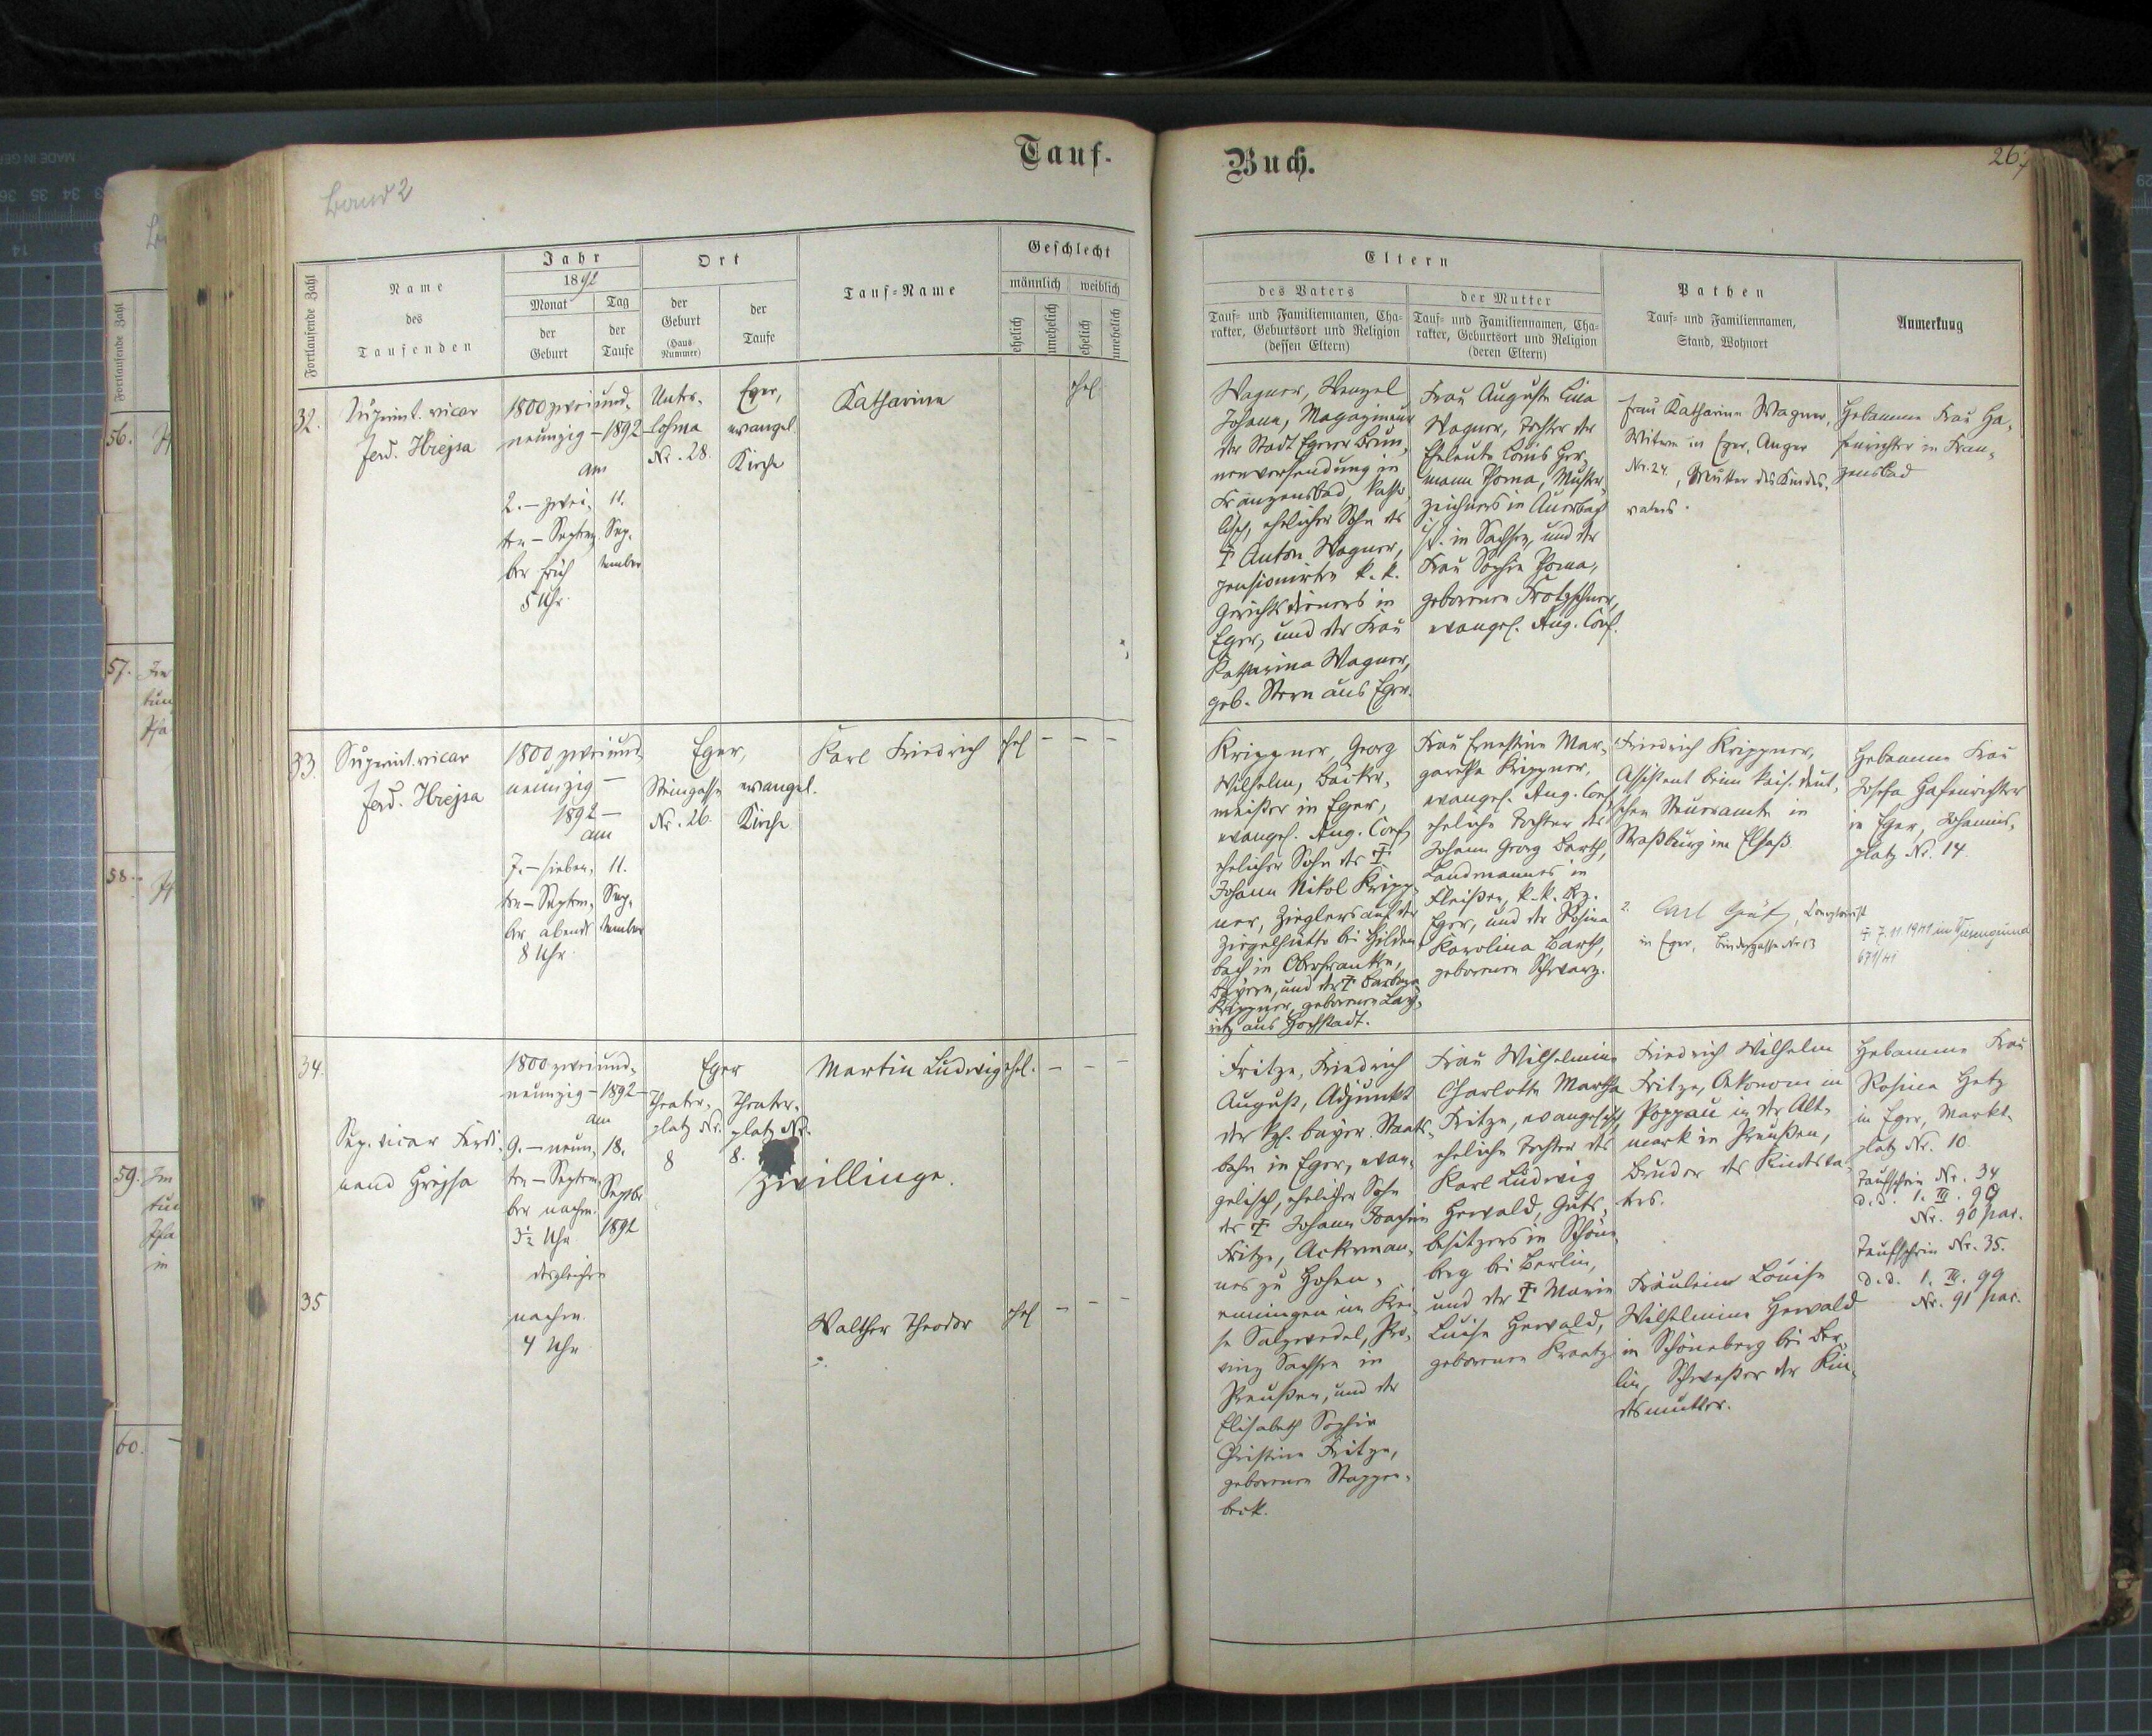 Tauf-
Buch.
267
Band 2
Fortlaufende Zahl
Name
des
Taufenden
Jahr
1892
Monat
der
Geburt
Tag
der
Taufe
Ort
der
Geburt
(Haus-
Nummer)
der
Taufe
Tauf-Name
Geschlecht
männlich
weiblich
ehelich
unehelich
ehelich
unehelich
Eltern
des Vaters
Tauf- und Familiennamen, Cha-
rakter, Geburtsort und Religion
(dessen Eltern)
der Mutter
Tauf- und Familiennamen, Cha-
rakter, Geburtsort und Religion
(deren Eltern)
Pathen
Tauf- und Familiennamen,
Stand, Wohnort
Anmerkung
32.
Superint. vicar
Ferd. Hrejsa
1800 zweiund-
neunzig – 1892
am
2. – zwei-
ten – Septem-
ber früh
5 Uhr.
11.
Sep-
tember
Unter-
lohma
Nr. 28.
Eger,
evangel.
Kirche
Katharina
ehel
Wagner, Wenzel
Johann, Magazineur
der Stadt Egerer Brun-
nenversendung in
Franzensbad, katho-
lisch, ehelicher Sohn des
† Anton Wagner,
pensionirten k. k.
Gerichtsdieners in
Eger, und der Frau
Katharina Wagner,
geb. Stern aus Eger.
Frau Auguste Lina
Wagner, Tochter der
Eheleute Louis Her-
mann Thoma, Muster-
zeichners in Auerbach
i/V. in Sachsen, und der
Frau Sophie Thoma,
geborenen Trotzschner,
evangel. Aug. Conf.
Frau Katharina Wagner,
Witwe in Eger, Anger
Nr. 24, Mutter des Kindes-
vaters.
Hebamme Frau Ha-
fenrichter in Fran-
zensbad
33.
Superint. vicar
Ferd. Hrejsa
1800 zweiund-
neunzig –
1892 –
am
7. – sieben-
ten – Septem-
ber abends
8 Uhr.
11.
Sep-
tember
Eger,
Steingasse
Nr. 26.
evangel.
Kirche
Karl Friedrich
ehel – – –
Krippner, Georg
Wilhelm, Bäcker-
meister in Eger,
evangel. Aug. Conf,
ehelicher Sohn des †
Johann Nikol Kripp-
ner, Zieglers auf der
Ziegelhütte bei Hilden-
bach in Oberfranken,
Bayern, und der † Barbara
Krippner, geborenen Lay-
ritz aus Hochstadt.
Frau Ernestine Mar-
garetha Krippner,
evangel. Aug. Conf,
eheliche Tochter des
Johann Georg Barth,
Landmannes in
Fleißen, k. k. Bz.
Eger, und der Rosina
Karolina Barth,
geborenen Schwarz.
Friedrich Krippner,
Assistent beim kais. deut-
schen Steueramte in
Straßburg im Elsaß.
2. Carl Gräf,
in Eger, Bindergasse Nr 13
Hebamme Frau
Josefa Hafenrichter
in Eger, Johannis-
platz Nr. 14.
† 7.11.1941 in
671/41
34.
Sup. vicar Ferdi-
nand Hrejsa
1800 zweiund-
neunzig – 1892 –
am
9. – neun-
ten – Septem-
ber nachm.
3½ Uhr
18.
Septbr
1892
Eger
Theater-
platz Nr.
8
Theater-
platz Nr.
8.
Martin Ludwig
ehel. – – –
Zwillinge.
desgleichen
35
nachm.
4 Uhr
Walther Theodor
ehel – – –
Fritze, Friedrich
August, Adjunkt
der kgl. bayer. Staats-
bahn in Eger, evan-
gelisch, ehelicher Sohn
des † Johann Joachim
Fritze, Ackerman-
nes zu Hohen-
enningen im Krei-
se Salzwedel, Pro-
vinz Sachsen in
Preußen, und der
Elisabeth Sophie
Christine Fritze,
geborenen Stappen-
beck.
Frau Wilhelmine
Charlotte Martha
Fritze, evangelisch,
eheliche Tochter des
Karl Ludwig
Hewald, Guts-
besitzers in Schöne-
berg bei Berlin,
und der † Marie
Luise Hewald,
geborenen Kraatz
Friedrich Wilhelm
Fritze, Oekonom in
Poppau in der Alt-
mark in Preußen,
Bruder des Kindsva-
ters.
Fräulein Louise
Wilhelmine Hewald
in Schöneberg bei Ber-
lin, Schwester der Kin-
desmutter.
Hebamme Frau
Rosina Hetz
in Eger, Markt-
platz Nr. 10
Taufschein Nr. 34
d. d. 1. III. 99
Nr. 90 par.
Taufschein Nr. 35.
d. d. 1. III. 99
Nr. 91 par.
56.
57.
58.
59.
60.